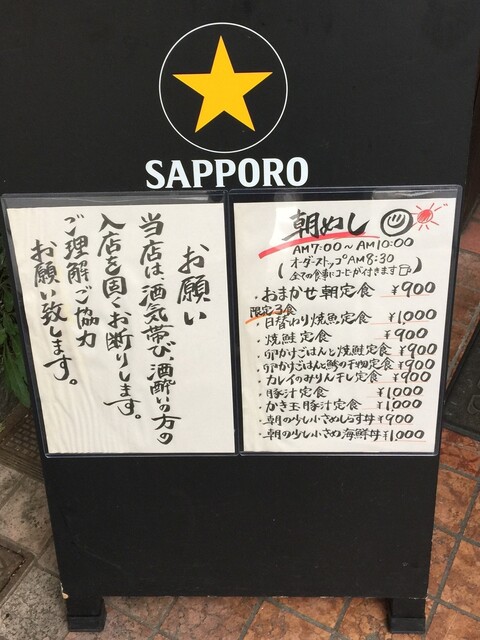 SAPPORO
お願い
当店は酒気帯び、酒酔いの方の
入店を固くお断りします。
ご理解ご協力
お願い致します。
朝めし
AM7:00〜AM10:00
(オーダーストップAM8:30
全ての食事にコーヒーが付きます)
・おまかせ朝定食 ¥900
限定3食
・日替わり焼魚定食 ¥1,000
・焼鮭定食 ¥900
・卵かけごはんと焼鮭定食 ¥900
・卵かけごはんと鯵の干物定食 ¥900
・カレイのみりん干し定食 ¥900
・豚汁定食 ¥1,000
・かき玉豚汁定食 ¥1,000
・朝の少し小さめしらす丼 ¥900
・朝の少し小さめ海鮮丼 ¥1,000